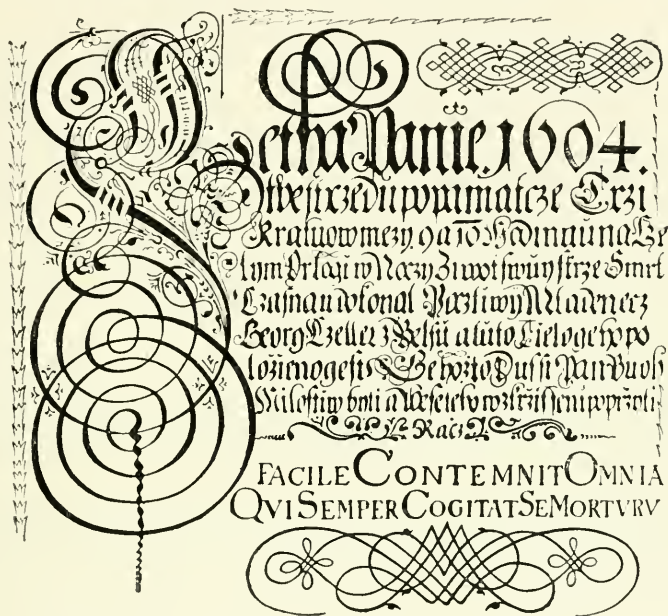 Letha Panie. 1604.
po pamatcze Trzi
Kraluow mezy 9 a 10 Hodinau na Cze
lym Orlogi w Noczy Ziwot swuy skrze Smrt
Czasnau dokonal Poczliwy Mladenecz
Georg Czeller z a tuto Tielo geho po
lozieno gest Gehozto Dussi Pan Buoh
Milostiw a
Racz
FACILE CONTEMNIT OMNIA
QVI SEMPER COGITAT SE MORTVRV